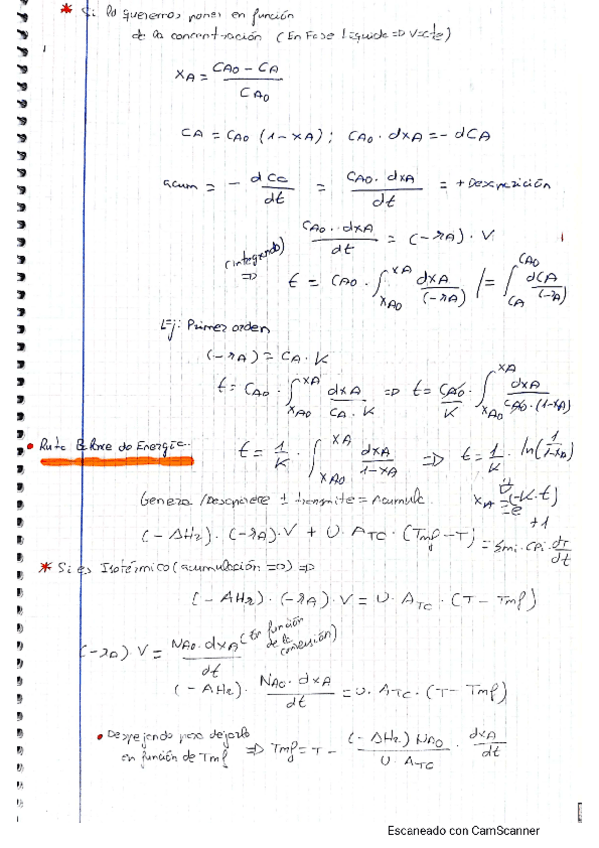 * Si lo queremos poner en función
de la concentración (En Fase líquida => V=cte)
xA = (CA0 - CA) / CA0
CA = CA0 (1-xA) ; CA0 · dxA = - dCA
acum = - dCc/dt = CA0 · dxA / dt = + Desaparición
CA0 · dxA / dt = (-rA) · V
(integrando) => t = CA0 · ∫xA0^xA dxA/(-rA) /= ∫CA^CA0 dCA/(-rA)
Ej: Primer orden
(-rA) = CA · K
t = CA0 · ∫xA0^xA dxA/(CA · K) => t = CA0/K · ∫xA0^xA dxA/(CA0 · (1-xA))
• Ruta Balance de Energía.
t = 1/K · ∫xA0^xA dxA/(1-xA) => t = 1/K · ln(1/(1-xA))
Genera /Desaparece ± transmite = Acumulc
xA = -e^(-K·t) +1
(-ΔHr) · (-rA) · V + U · ATC · (Tmf - T) = Σmi · CPi · dT/dt
* Si es Isotérmico (acumulación = 0) =>
(-ΔHr) · (-rA) · V = U · ATC · (T - Tmf)
(-rA) · V = NA0 · dxA / dt (En función de la conversión)
(-ΔHr) · NA0 · dxA / dt = U · ATC · (T - Tmf)
• Despejando para dejarlo
en función de Tmf => Tmf = T - (-ΔHr) NA0 / (U · ATC) · dxA/dt
Escaneado con CamScanner